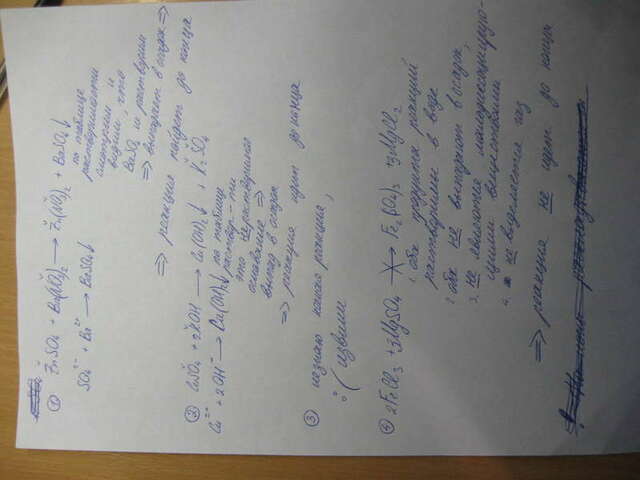 ① ZnSO₄ + Ba(NO₃)₂ → Zn(NO₃)₂ + BaSO₄↓
SO₄²⁻ + Ba²⁺ → BaSO₄↓
по таблице
растворимости
смотрим и
видим, что
BaSO₄ не растворим
⇒ выпадает в осадок ⇒
⇒ реакция пойдёт до конца
② CuSO₄ + 2KOH → Cu(OH)₂↓ + K₂SO₄
Cu²⁺ + 2OH⁻ → Cu(OH)₂↓
по таблице
раствор-ти
это нерастворимое
основание ⇒
выпад. в осадок
⇒ реакция идет до конца
③ незнаю какая реакция,
:( извини
④ 2FeCl₃ + 3MgSO₄ → Fe₂(SO₄)₃ + 3MgCl₂
1. оба продукта реакции
растворимы в воде
2. оба не выпадают в осадок,
3. не являются малодиссоциирую-
щими веществами
4. не выделяется газ
⇒ реакция не идет до конца